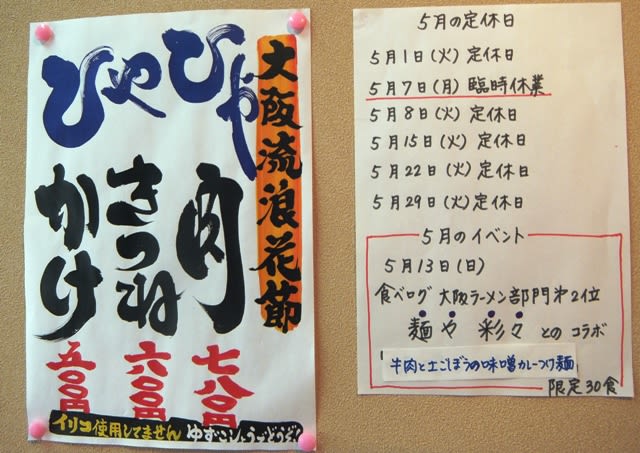 大阪流浪花節
ひやひや
肉
七八〇円
きつね
六〇〇円
かけ
五〇〇円
イリコ使用してません
5月の定休日
5月1日(火)定休日
5月7日(月)臨時休業
5月8日(火)定休日
5月15日(火)定休日
5月22日(火)定休日
5月29日(火)定休日
5月のイベント
5月13日(日)
食べログ 大阪ラーメン部門第2位
麺や 彩々 とのコラボ
牛肉と土ごぼうの味噌カレーつけ麺
限定30食